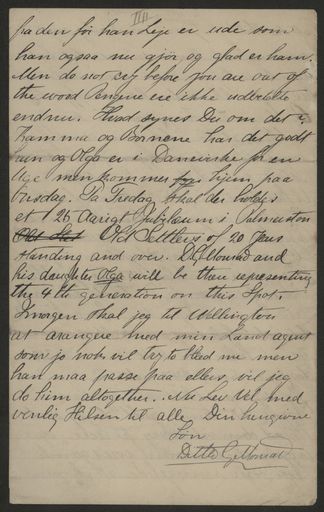 III
paa den før han Leje er ude som
han ogsaa nu gjør og glad er ham.
Men do not say before you are out of
the wood Pengene ere ikke udbetalte
endnu. Hvad synes Du om det?
Hamma og Børnene har det godt
hun og Olga er i Danevirke for en
Uge men kommer hjem paa
Torsdag. Paa Fredag skal her holdes
et 25 Aarigt Jubilæum i Palmerston
Old Settlers of 20 years
standing and over. D. G. Monrad and
his daughter Olga will be there representing
the 4th generation on this Spot.
Imorgen skal jeg til Wellington
at arangere med min Land agent
som jo nok vil try to bleed me men
han maa passe paa ellers vil jeg
do him altogether. Nu Lev Vel med
venlig Hilsen til alle, Din hengivne
Søn
Ditlev G. Monrad